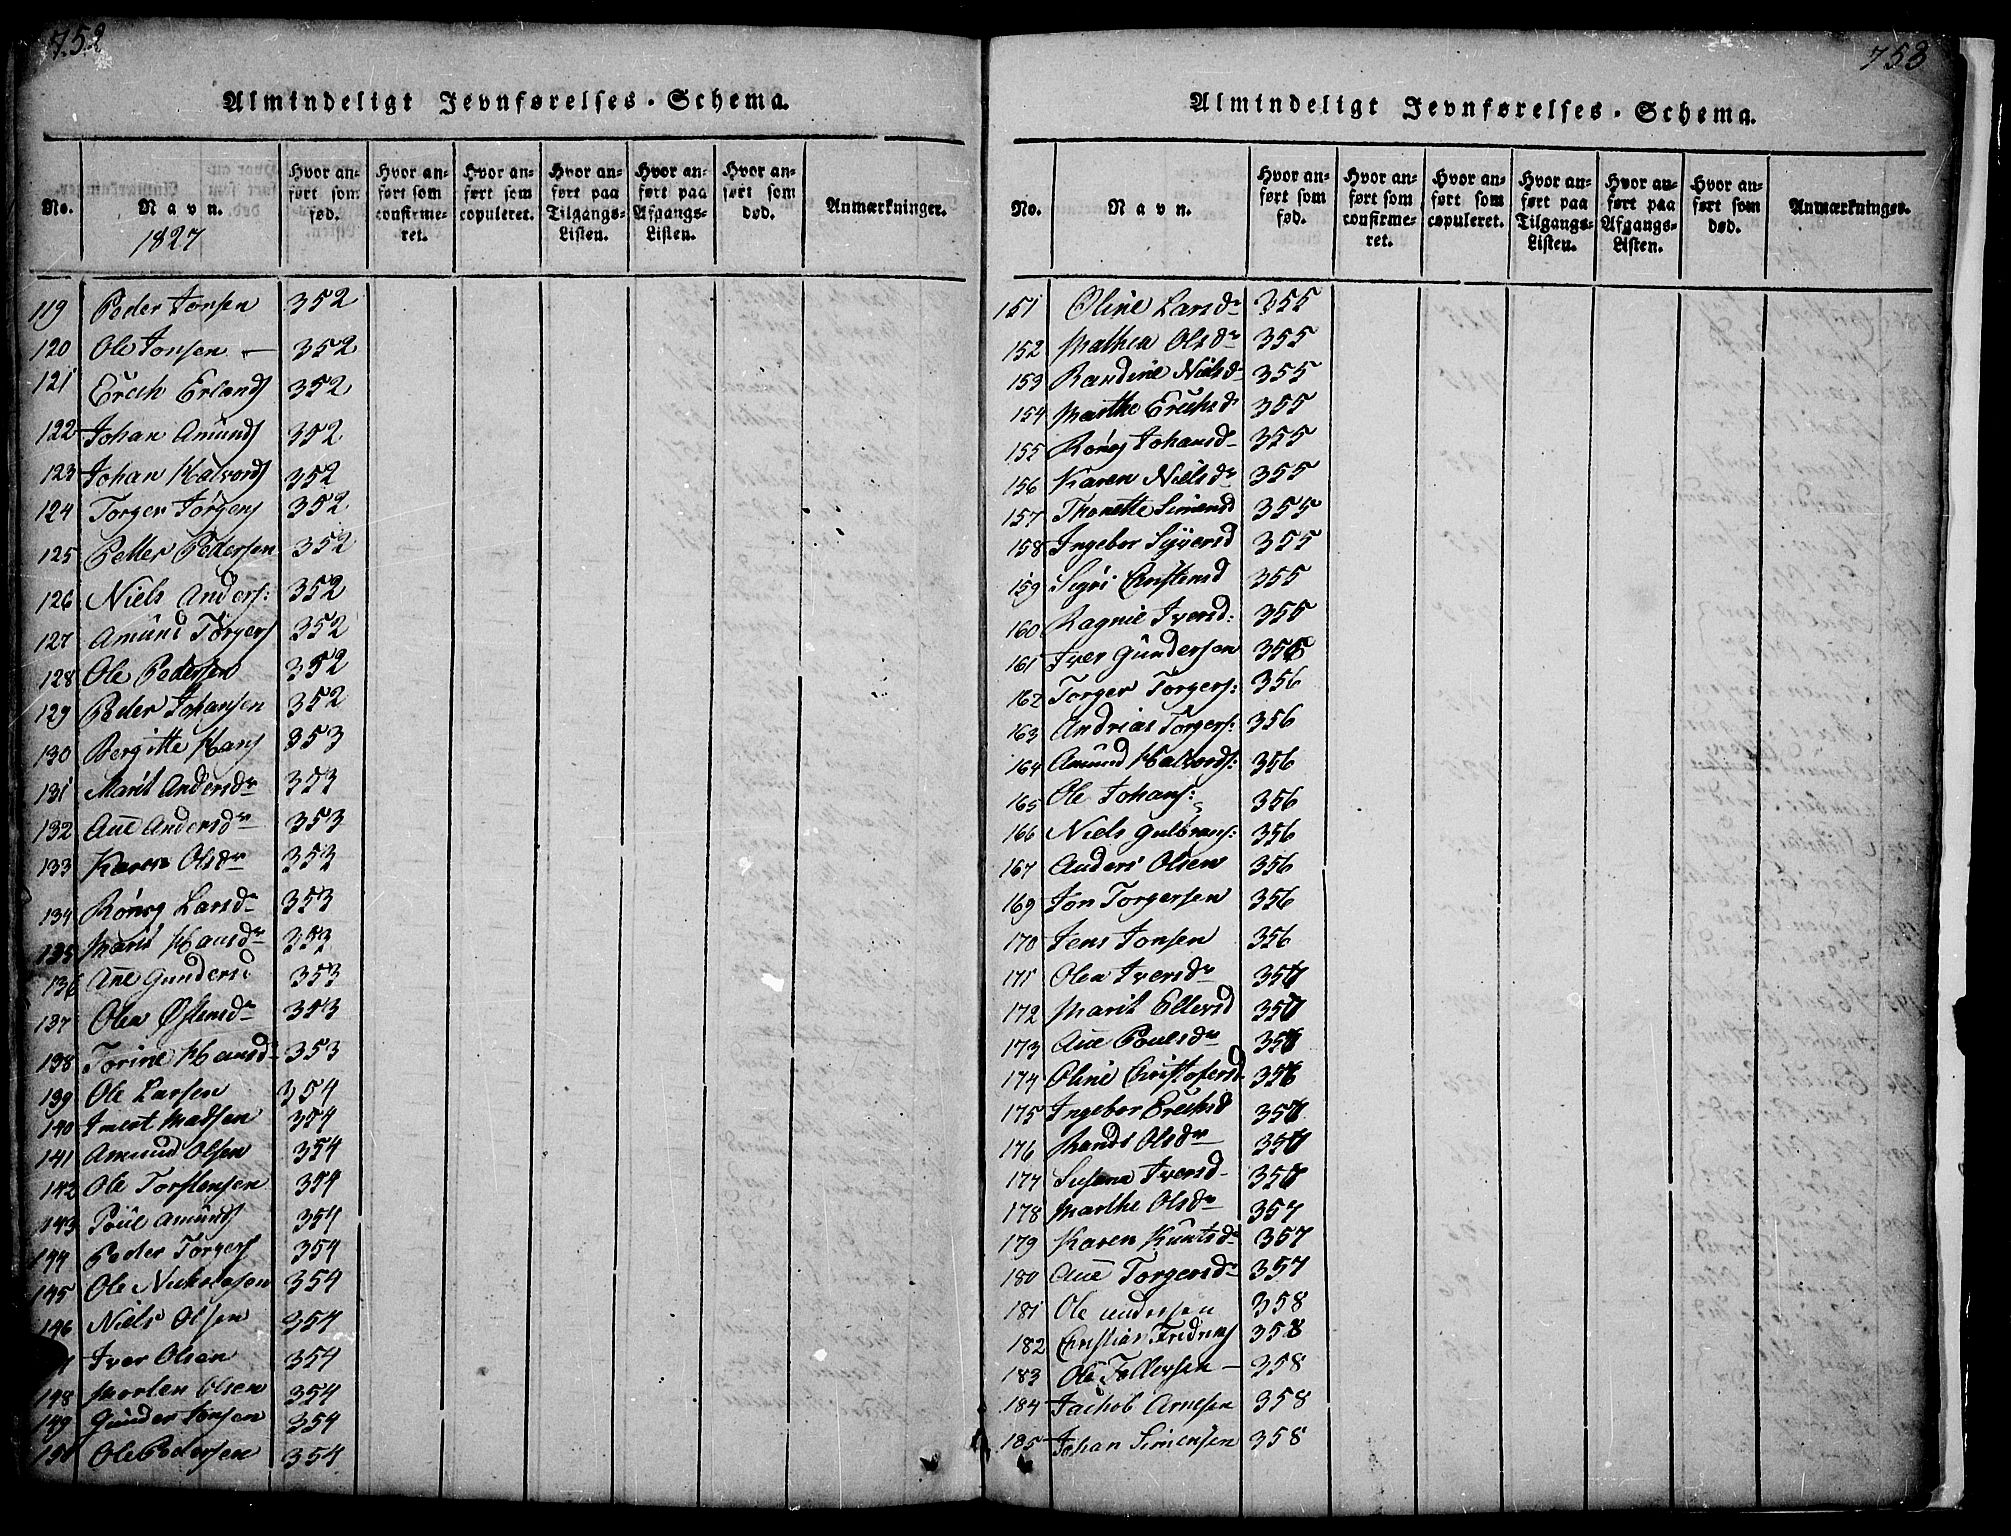 752
Almindeligt Jevnførelses-Schema.
No.
Navn.
1827
Hvor anført som fød.
Hvor anført som confirmeret.
Hvor anført som copuleret.
Hvor anført paa Tilgangs-Listen.
Hvor anført paa Afgangs-Listen.
Hvor anført som død.
Anmærkninger.
119 Peder Jonsen 352
120 Ole Jonsen — 352
121 Erich Erlands 352
122 Johan Amunds 352
123 Johan Halvords 352
124 Torger Jørgens 352
125 Petter Pedersen 352
126 Niels Anders: 352
127 Amund Torgers 352
128 Ole Pedersen 352
129 Peder Johansen 352
130 Bergitte Hans 353
131 Marit Andersdr 353
132 Ane Andersdr 353
133 Karen Olsdr 353
134 Rønog Larsdr 353
135 Marit Hansdr 353
136 Ane Gundersd 353
137 Olea Østensdr 353
138 Torine Hansd 353
139 Ole Larsen 354
140 Madsen 354
141 Amund Olsen 354
142 Ole Torstensen 354
143 Poul Amunds 354
144 Peder Torgers 354
145 Ole Nicholasen 354
146 Niels Olsen 354
Iver Olsen 354
148 Morten Olsen 354
149 Gunder Jonsen 354
150 Ole Pedersen 354
753
Almindeligt Jevnførelses-Schema.
No.
Navn.
Hvor anført som fød.
Hvor anført som confirmeret.
Hvor anført som copuleret.
Hvor anført paa Tilgangs-Listen.
Hvor anført paa Afgangs-Listen.
Hvor anført som død.
Anmærkninger.
151 Oline Larsdr 355
152 Mathea Olsdr 355
153 Randine Nielsd 355
154 Marthe Erichsd 355
155 Rønog Johansd 355
156 Karen Nielsdr 355
157 Thonette Simensd 355
158 Ingebor Syversd 355
159 Sigri Christensd 355
160 Ragnie Iversd: 355
161 Iver Gundersen 356
162 Torger Torgers: 356
163 Andrias Torgers: 356
164 Amund Halvords: 356
165 Ole Johans: 356
166 Niels Gulbrans: 356
167 Anders Olsen 356
169 Jon Torgersen 356
170 Jens Jonsen 356
171 Olea Iversdr 357
172 Marit Ellevsd 357
173 Ane Poulsdr 357
174 Oline Christofersd 357
175 Ingebor Erichsd 357
176 Randi Olsdr 357
177 Susana Iversd 357
178 Marthe Olsdr 357
179 Karen Knutsdr 357
180 Ane Torgersdr 357
181 Ole Andersen 358
182 Christian Fredrichs 358
183 Ole Tollevsen — 358
184 Jachob Arnesen 358
185 Johan Simensen 358